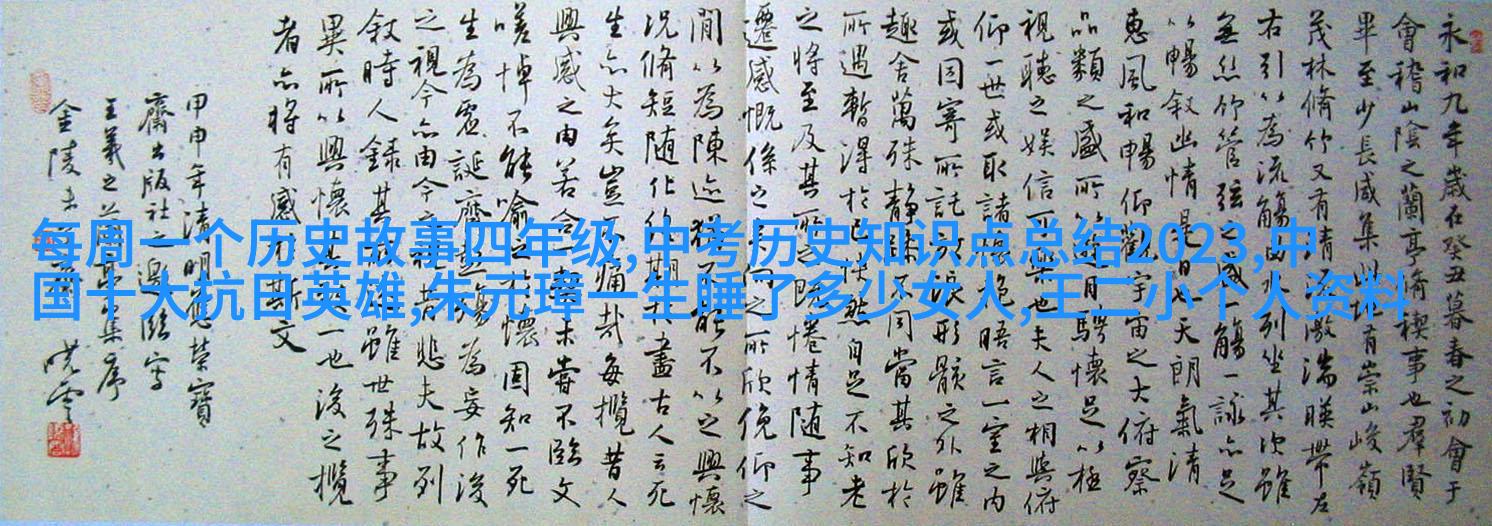 每周一个历史故事四年级,中考历史知识点总结2023,中
国十大抗日英雄,朱元璋一生睡了多少女人,王二小个人资料
永和九年歲在癸丑暮春之初會于
會稽山陰之蘭亭脩禊事也群賢
畢至少長咸集此地有崇山峻嶺
茂林脩竹又有清流激湍暎帶左
右引以為流觴曲水列坐其次雖
無絲竹管弦之盛一觴一詠亦足
以暢敘幽情是日也天朗氣清
惠風和暢仰觀宇宙之大俯察
品類之盛所以遊目騁懷足以極
視聽之娛信可樂也夫人之相與俯
仰一世或取諸懷抱晤言一室之內
或因寄所託放浪形骸之外雖
趣舍萬殊靜躁不同當其欣於
所遇暫得於己怏然自足不知老
之將至及其所之既惓情隨事
遷感慨係之矣向之所欣俛仰之
間以為陳迹猶不能不以之興懷
況脩短隨化終期於盡古人云死
生亦大矣豈不痛哉每攬昔人
興感之由若合一契未嘗不臨文
嗟悼不能喻之於懷固知一死
生為虛誕齊彭殤為妄作後
之視今亦由今之視昔悲夫故列
敘時人錄其所述雖世殊事
異所以興懷其致一也後之攬
者亦將有感於斯文
甲申年清明應榮寶
齋出版社之邀臨寫
王羲之蘭亭集序
金陵